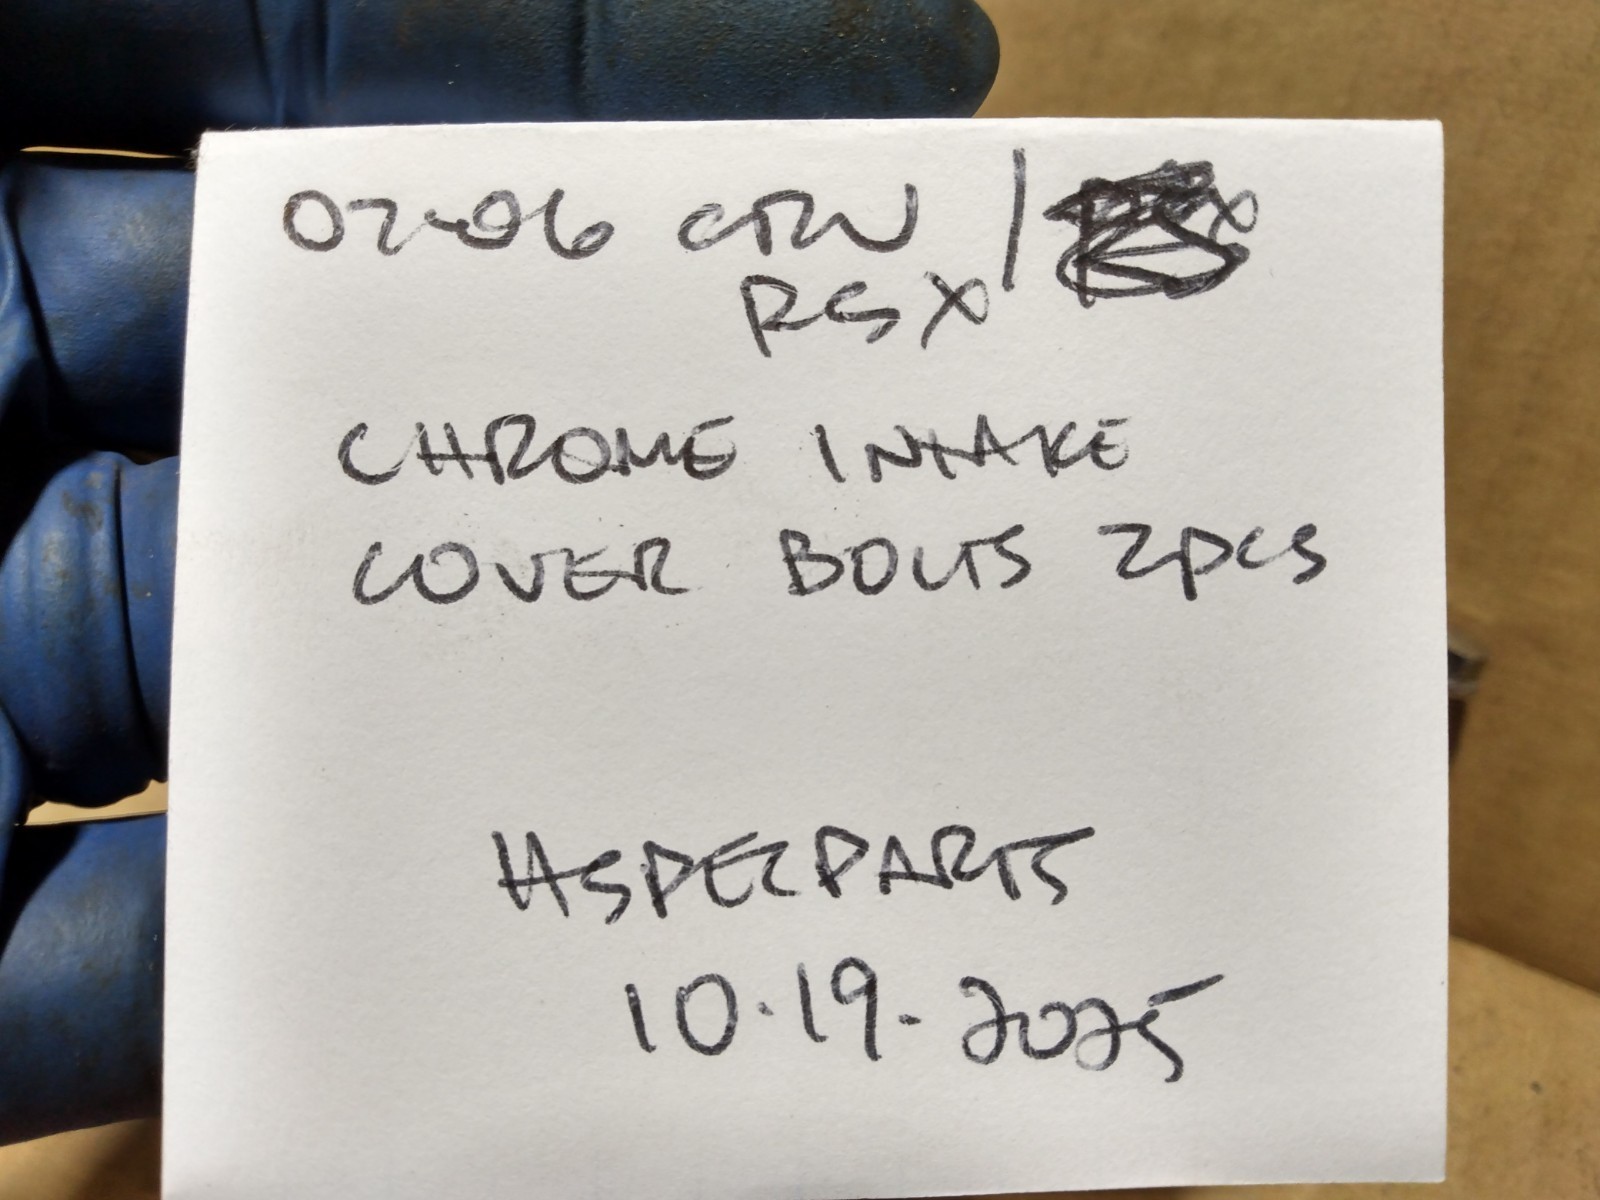 02-06 CRV /
RSX
CHROME INTAKE
COVER BOLTS 2PCS
HSPECPARTS
10.19.2025